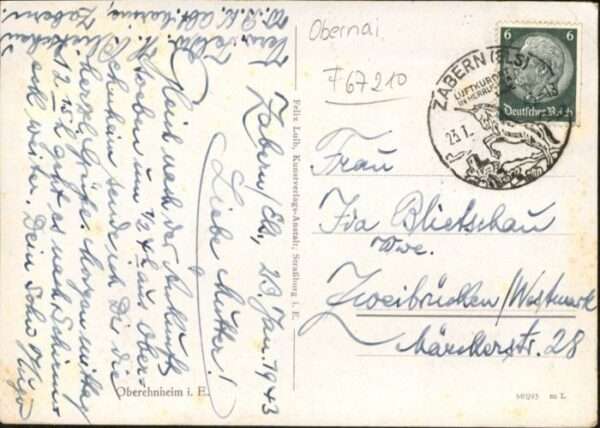 Obernai
F 67210
6 6
Deutsches Reich
ZABERN (ELS)
LUFTKURORT
23.1.
43
Frau
Ida Blietschau
Wwe.
Zweibrücken/Westmark
Märckerstr. 28
Felix Luib, Kunstverlags-Anstalt, Straßburg i. E.
Oberehnheim i. E.
Zabern/Els., 23. Jan. 1943
Liebe Mutter!
Gleich nach der Ankunft
hier oben um ½ 4 h aus Ober-
ehnheim sende ich Dir die
herzl. Grüße. Morgen mittag
12 15 h geht es nach
weiter Dein Sohn Hugo
H. Blietschau
Zabern.